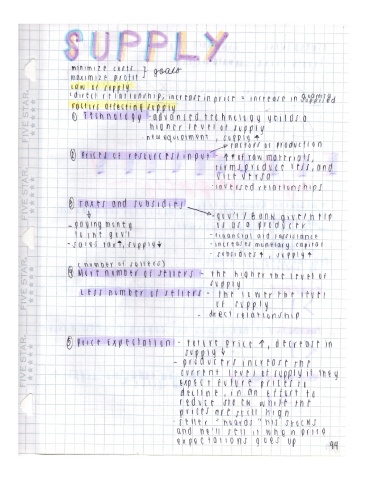 SUPPLY
minimize costs
maximize profit } goals
Law of supply
direct relationship, increase in price = increase in quantity supplied
Factors affecting supply
① Technology - advanced technology yields a
higher level of supply
new equipment, supply ↑
② Prices of resources/input
factors of production
- ↑ # of raw materials,
firms produce less, and
vice versa
- inversed relationships
③ Taxes and subsidies
- paying money
to the gov't
- sales tax ↑, supply ↓
- gov't / BANK gives help
to as a producer
- financial aid assistance
- increases monetary capital
- subsidies ↑, supply ↑
(number of sellers)
④ More number of sellers - the higher the level of
supply
Less number of sellers - the lower the level
of supply
- direct relationship
⑤ Price Expectation - future price ↑, decrease in
supply ↓
- producers increase the
current level of supply if they
expect future prices to
decline, in an effort to
reduce stock while the
prices are still high
- seller "hoards" his stocks
and he'll sell it when price
expectations goes up
94
FIVE STAR.
FIVE STAR.
FIVE STAR.
FIVE STAR.